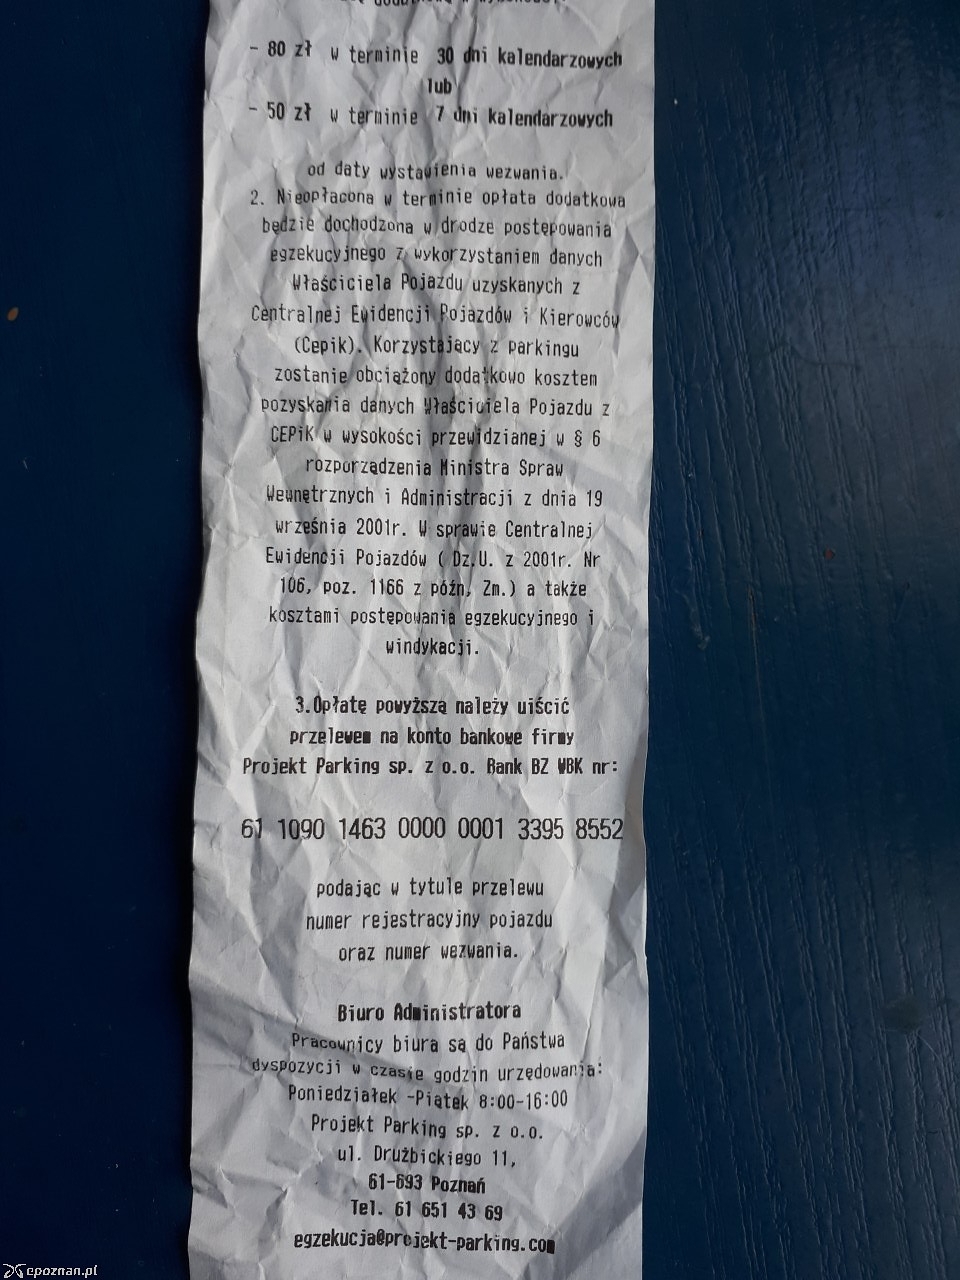 dodatkową w wysokości:
- 80 zł w terminie 30 dni kalendarzowych
lub
- 50 zł w terminie 7 dni kalendarzowych
od daty wystawienia wezwania.
2. Nieopłacona w terminie opłata dodatkowa
będzie dochodzona w drodze postępowania
egzekucyjnego z wykorzystaniem danych
Właściciela Pojazdu uzyskanych z
Centralnej Ewidencji Pojazdów i Kierowców
(Cepik). Korzystający z parkingu
zostanie obciążony dodatkowo kosztem
pozyskania danych Właściciela Pojazdu z
CEPiK w wysokości przewidzianej w § 6
rozporządzenia Ministra Spraw
Wewnętrznych i Administracji z dnia 19
września 2001r. W sprawie Centralnej
Ewidencji Pojazdów ( Dz.U. z 2001r. Nr
106, poz. 1166 z późn, Zm.) a także
kosztami postępowania egzekucyjnego i
windykacji.
3.Opłatę powyższą należy uiścić
przelewem na konto bankowe firmy
Projekt Parking sp. z o.o. Bank BZ WBK nr:
61 1090 1463 0000 0001 3395 8552
podając w tytule przelewu
numer rejestracyjny pojazdu
oraz numer wezwania.
Biuro Administratora
Pracownicy biura są do Państwa
dyspozycji w czasie godzin urzędowania:
Poniedziałek -Piątek 8:00-16:00
Projekt Parking sp. z o.o.
ul. Drużbickiego 11,
61-693 Poznań
Tel. 61 651 43 69
egzekucja@projekt-parking.com
epoznan.pl